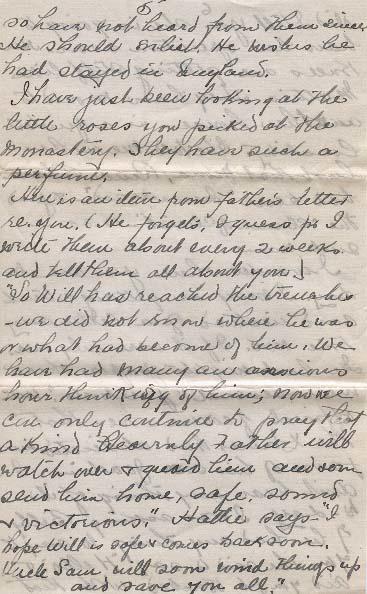 5
so have not heard from them since.
He should enlist. He wishes he
had stayed in England.
I have just been looking at the
little roses you picked at the
Monastery. They have such a
perfume.
Here is an item from father's letter
re. you. (He forgets, I guess for I
write them about every 2 weeks
and tell them all about you.)
"So Will has reached the trenches
- we did not know where he was
or what had become of him. We
have had many an anxious
hour thinking of him; now we
can only continue to pray that
a kind Heavenly Father will
watch over & guard him and soon
send him home, safe, sound
& victorious." Hattie says - "I
hope Will is safe & comes back soon.
Uncle Sam will soon wind things up
and save you all."